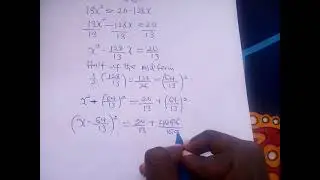 13x² = 20 - 128x
13x²/13 - 128x/13 = 20/13
x² - 128/13 x = 20/13
Half of the mid term
1/2 (128/13) = 128/26 = (64/13)²
x² + (64/13)² = 20/13 + (64/13)²
(x - 64/13)² = 20/13 + 4096/169